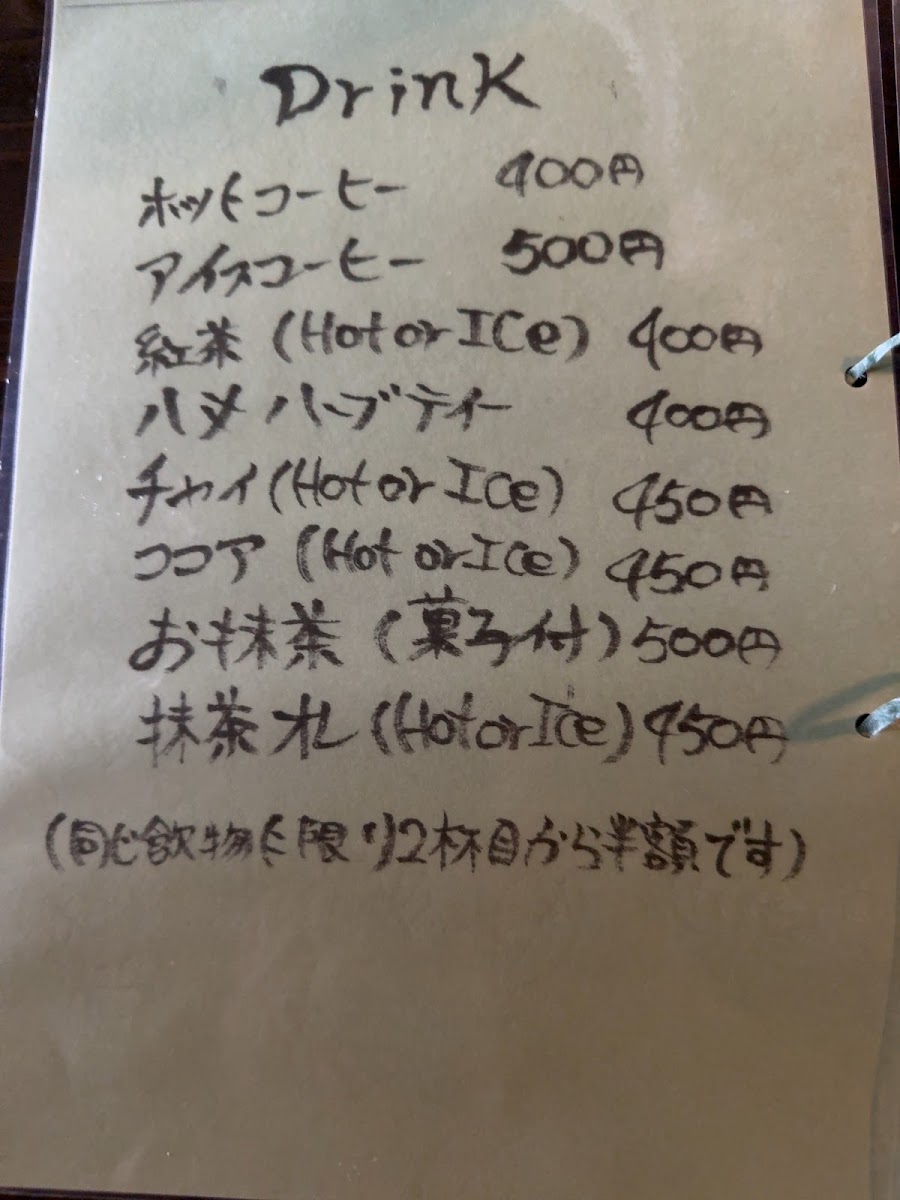 Drink
ホットコーヒー 400円
アイスコーヒー 500円
紅茶 (Hot or ICe) 400円
ハメハーブティー 400円
チャイ (Hot or Ice) 450円
ココア (Hot or Ice) 450円
お抹茶 (菓子付) 500円
抹茶オレ (Hot or Ice) 450円
(同じ飲物に限り2杯目から半額です)